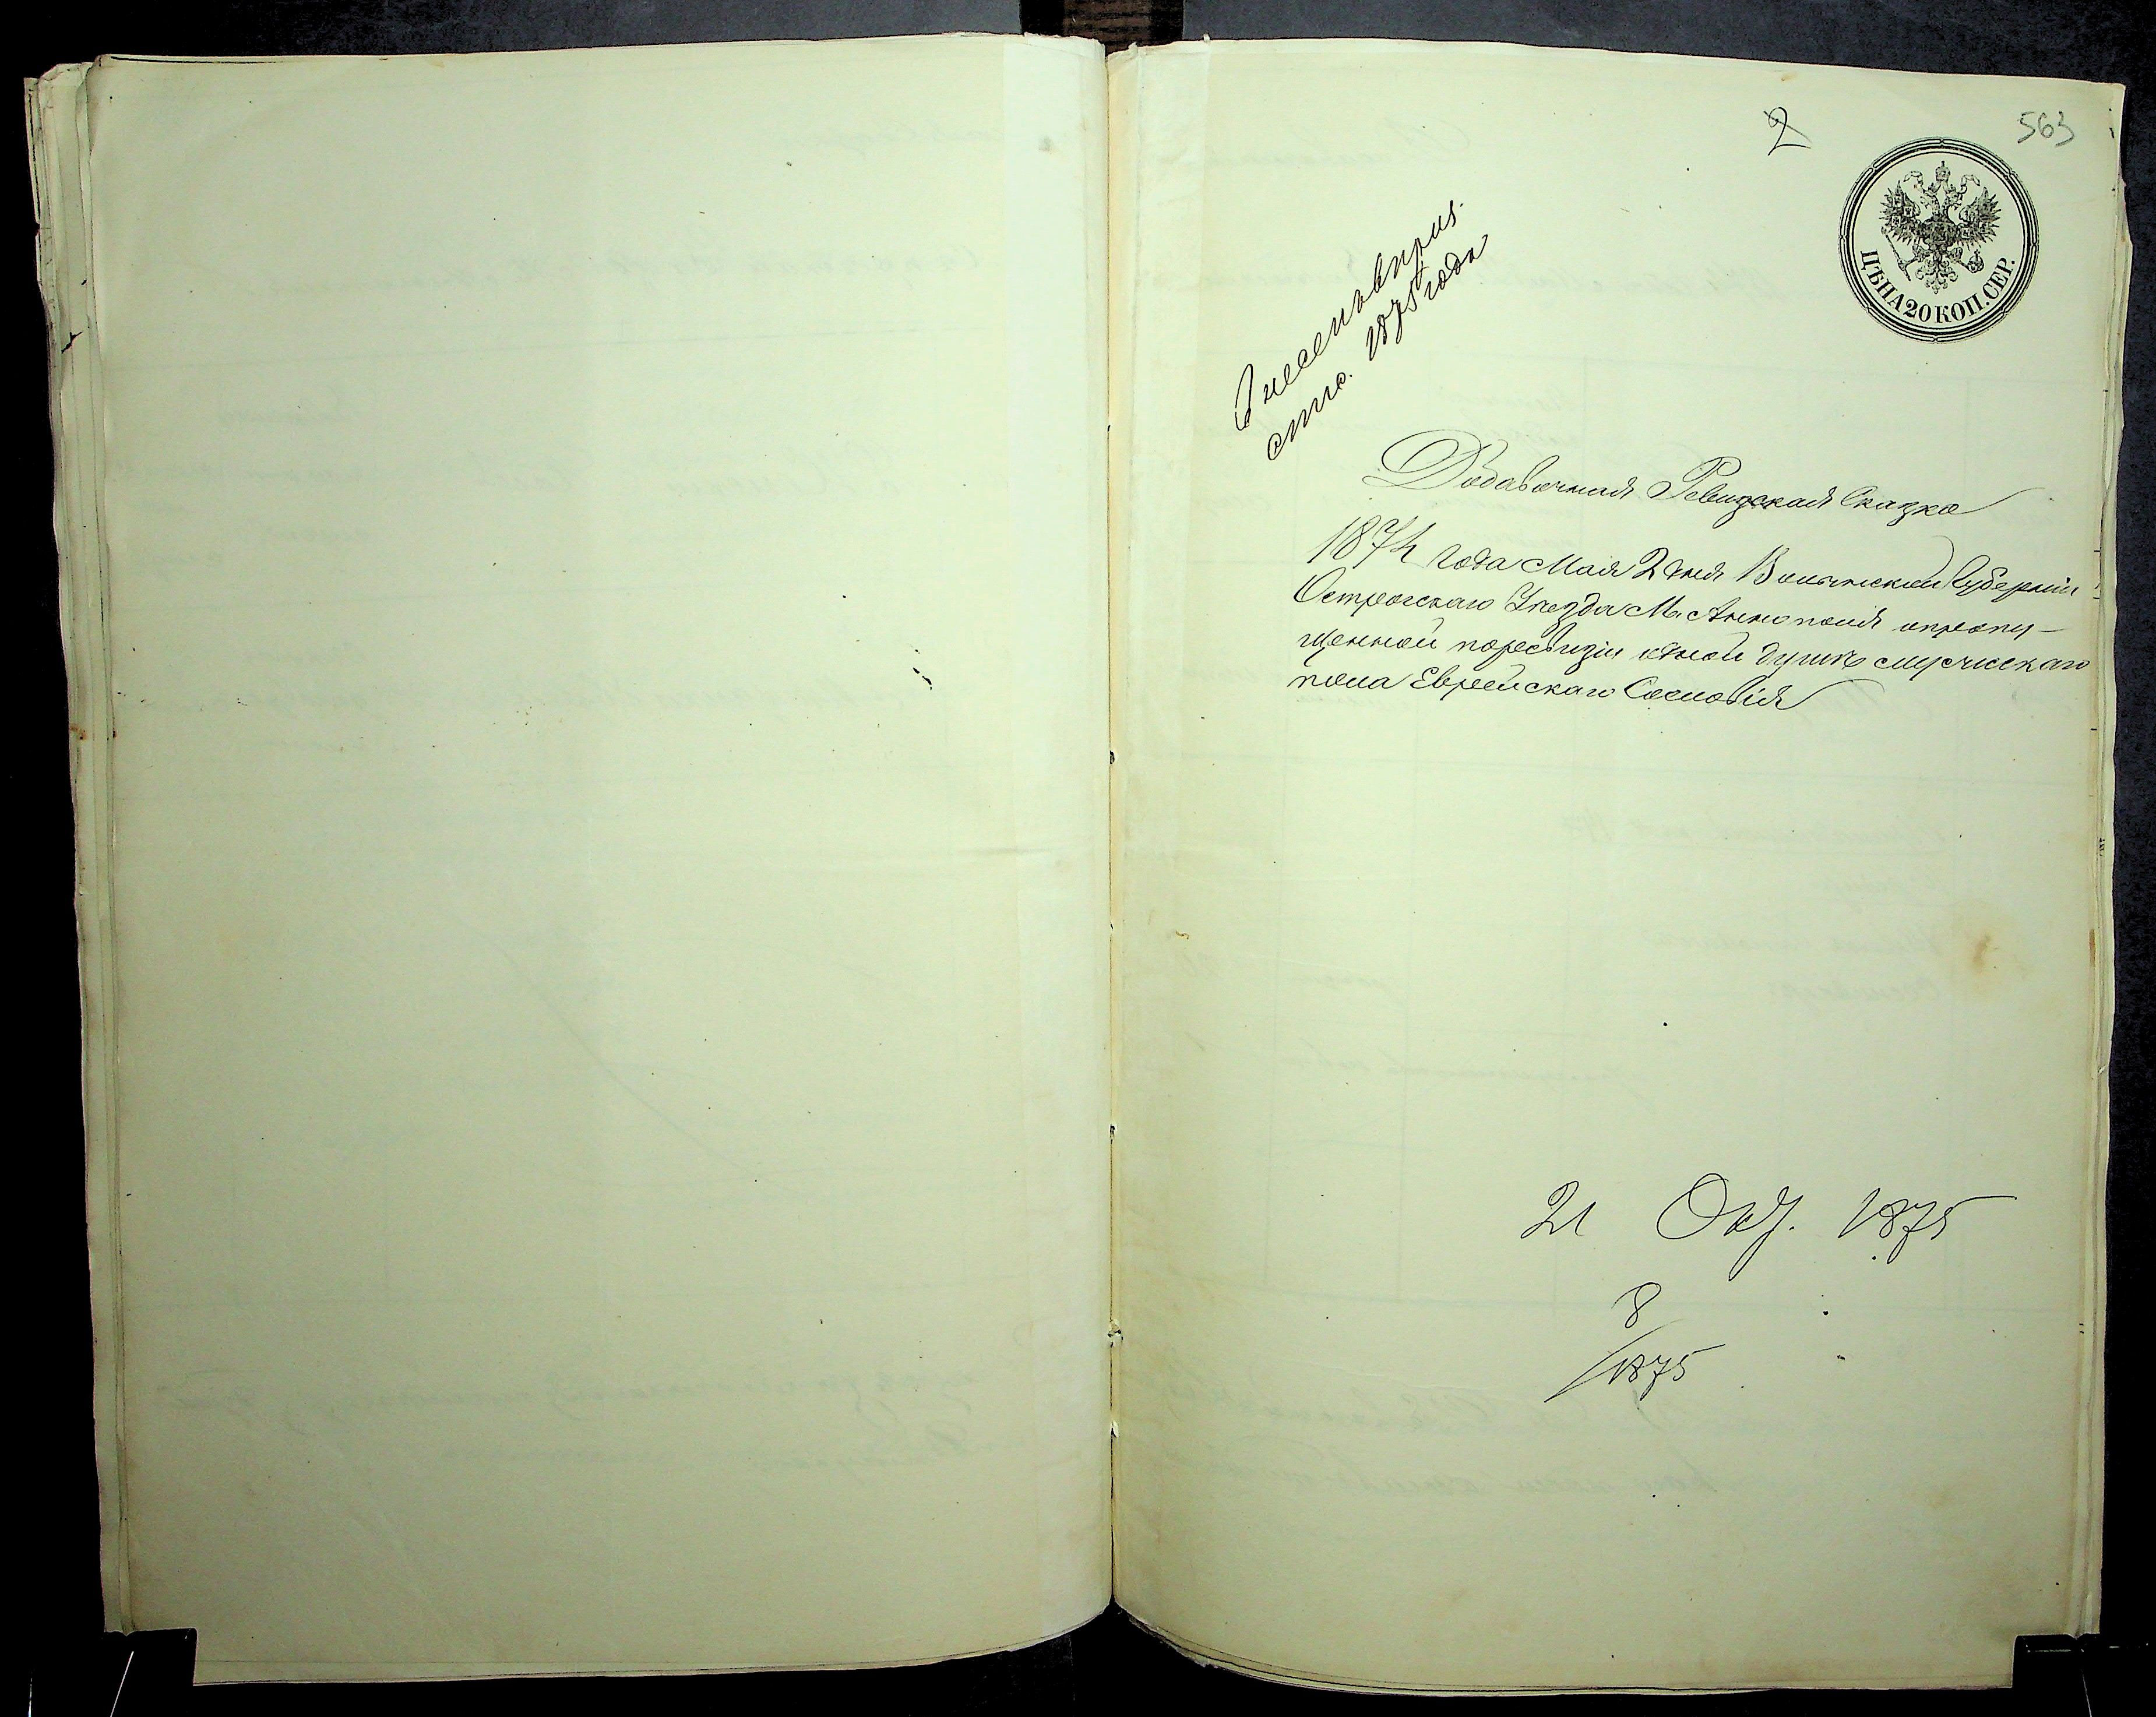 2
563
ЦѢНА 20 КОП. СЕР.
Внесенъ въ
1875 года
Добавочная Ревизская Сказка
1874 года Мая 2 дня Волынской Губерніи
Острогскаго Уѣзда М. Аннополя о пропу-
щенной по ревизіи одной душѣ мужескаго
пола Еврейскаго Сословія
21 Окт. 1875
8
/1875